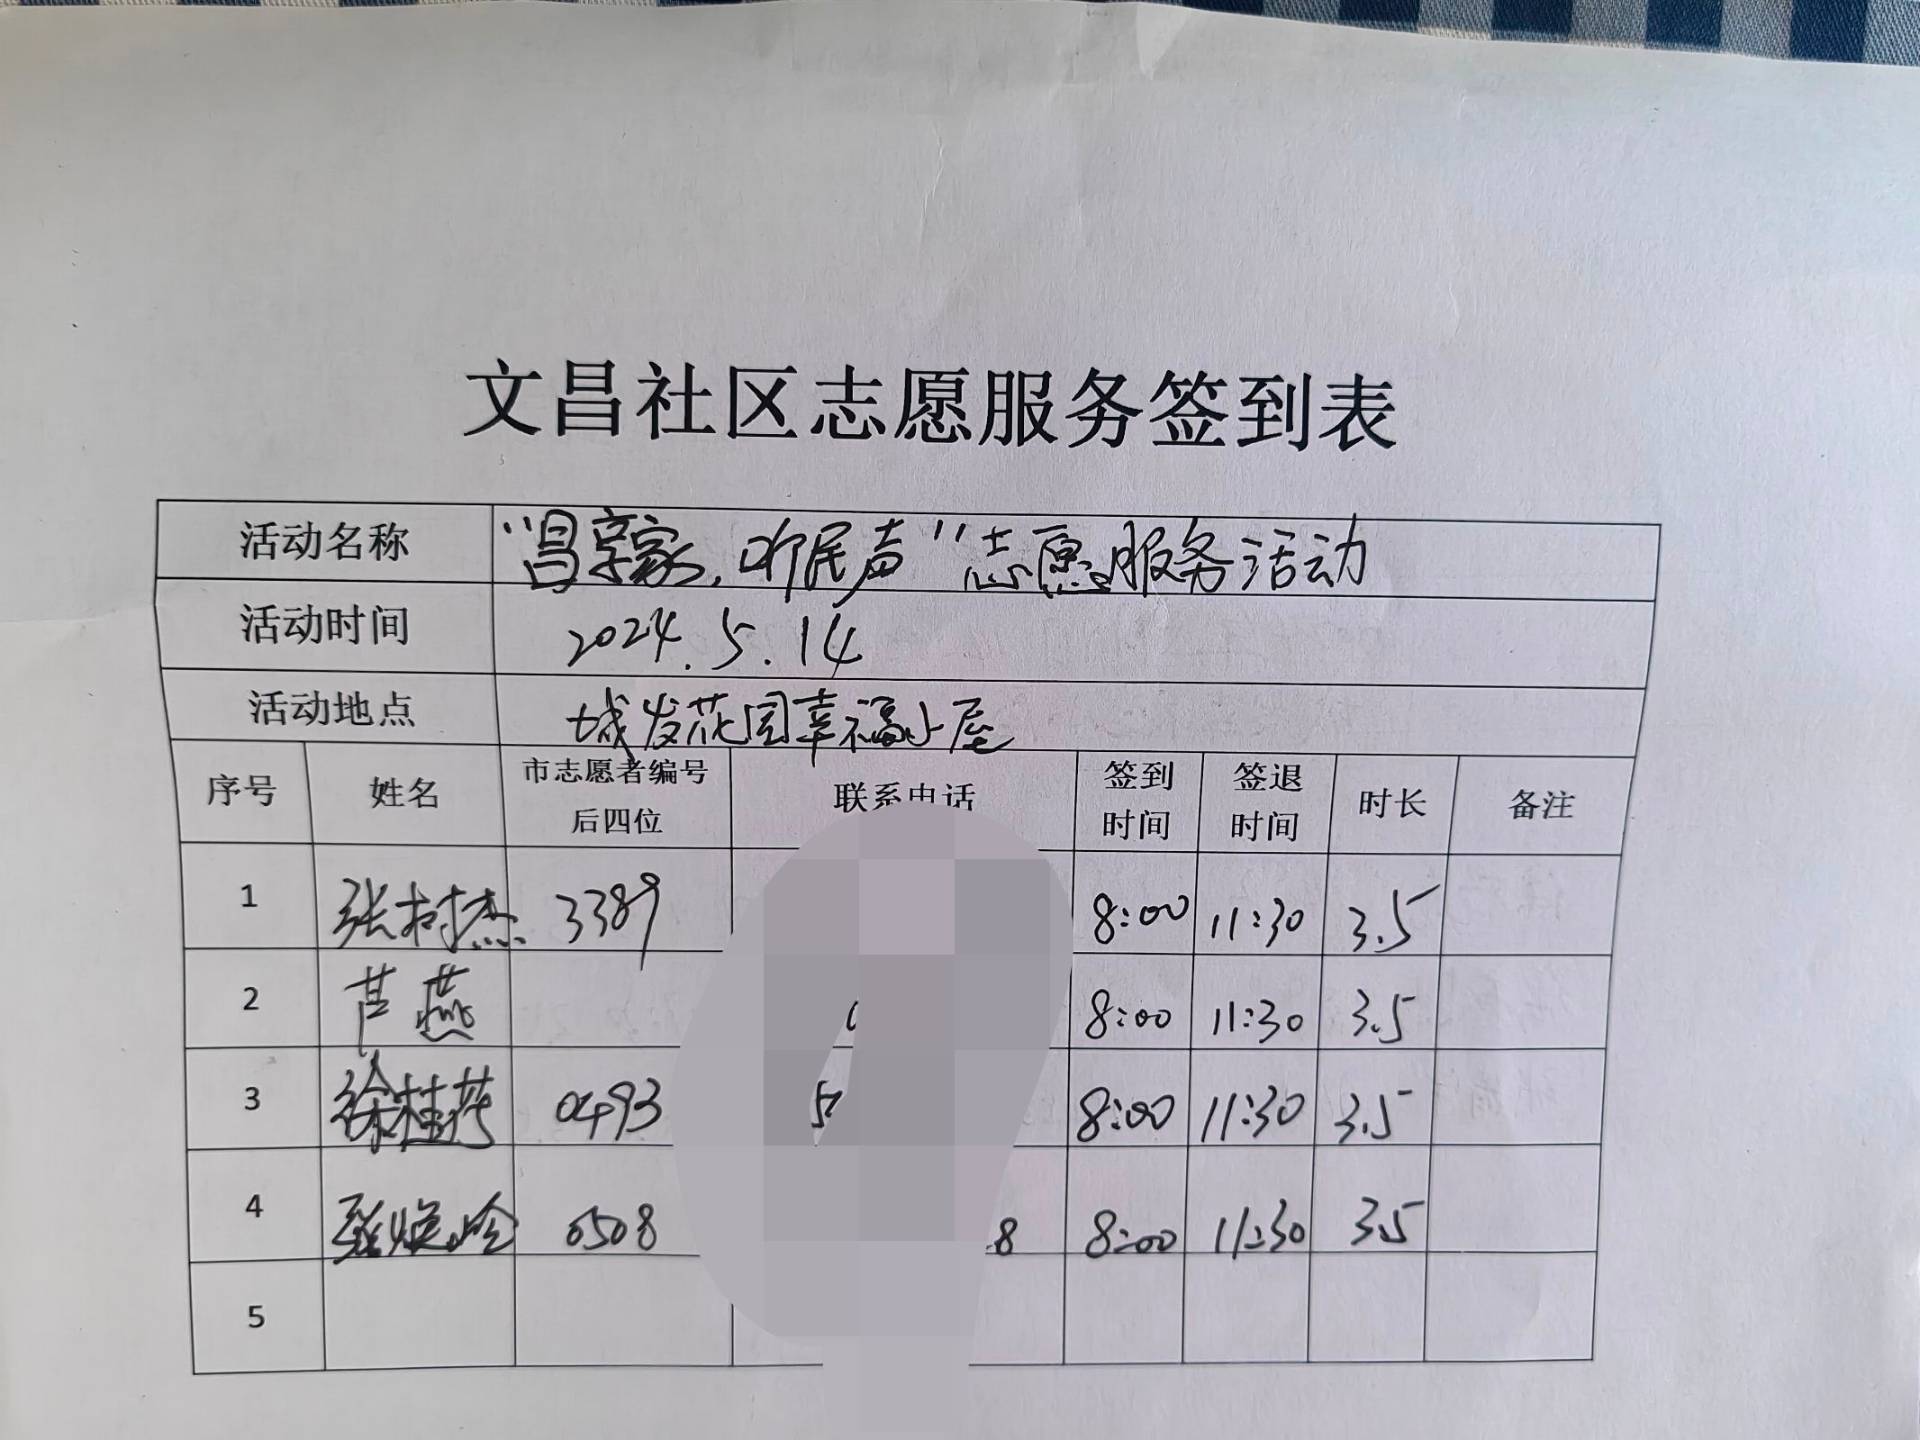 文昌社区志愿服务签到表
活动名称 "昌享家,听民声"志愿服务活动
活动时间 2024.5.14
活动地点 城发花园幸福小屋
序号 姓名 市志愿者编号后四位 联系电话 签到时间 签退时间 时长 备注
1 张树杰 3389 8:00 11:30 3.5
2 芦燕 8:00 11:30 3.5
3 徐桂 0493 5 8:00 11:30 3.5
4 张焕玲 0508 8 8:00 11:30 3.5
5